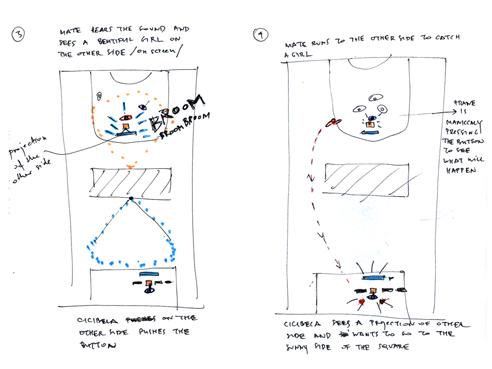 3
MATE HEARS THE SOUND AND
SEES A BEAUTIFUL GIRL ON
THE OTHER SIDE /ON SCREEN/
BROOM
BROOM BROOM
projection
of the
other side
CICIBELA ON THE
OTHER SIDE PUSHES THE
BUTTON
4
MATE RUNS TO THE OTHER SIDE TO CATCH
A GIRL
FRANE
IS
PRESSING
THE BUTTON
TO SEE
WHAT WILL
HAPPEN
CICIBELA SEES A PROJECTION OF OTHER
SIDE AND WANTS TO GO TO THE
SUNNY SIDE OF THE SQUARE